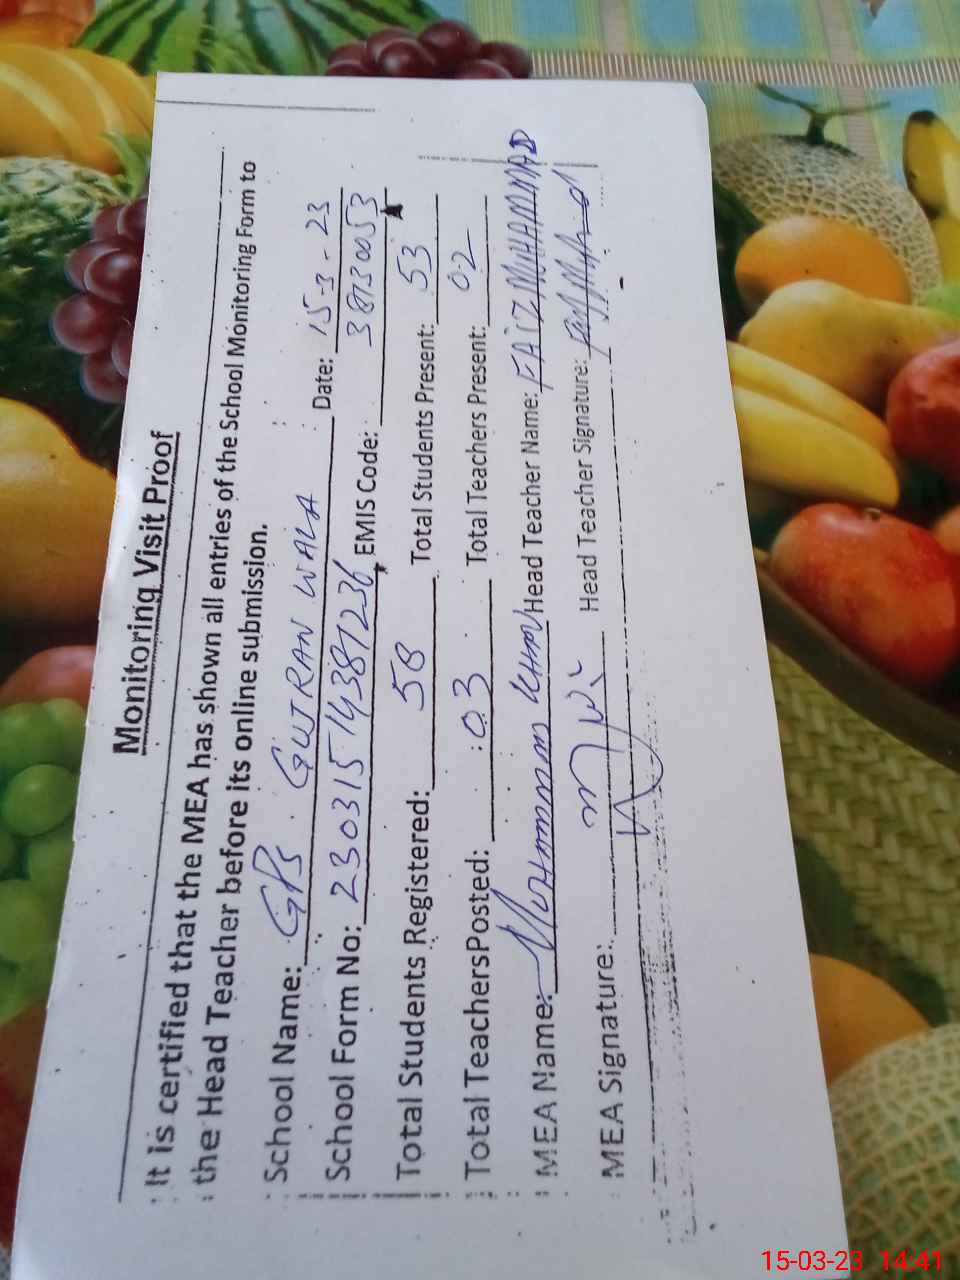 Monitoring Visit Proof
It is certified that the MEA has shown all entries of the School Monitoring Form to
the Head Teacher before its online submission.
School Name: GPS GUJRAN WALA Date: 15-3-23
School Form No: 230315143871236 EMIS Code: 38730053
Total Students Registered: 58 Total Students Present: 53
Total TeachersPosted: 03 Total Teachers Present: 02
MEA Name: MUHAMMAD KHAN Head Teacher Name: FAIZ MUHAMMAD
MEA Signature: Head Teacher Signature:
15-03-23 14:41